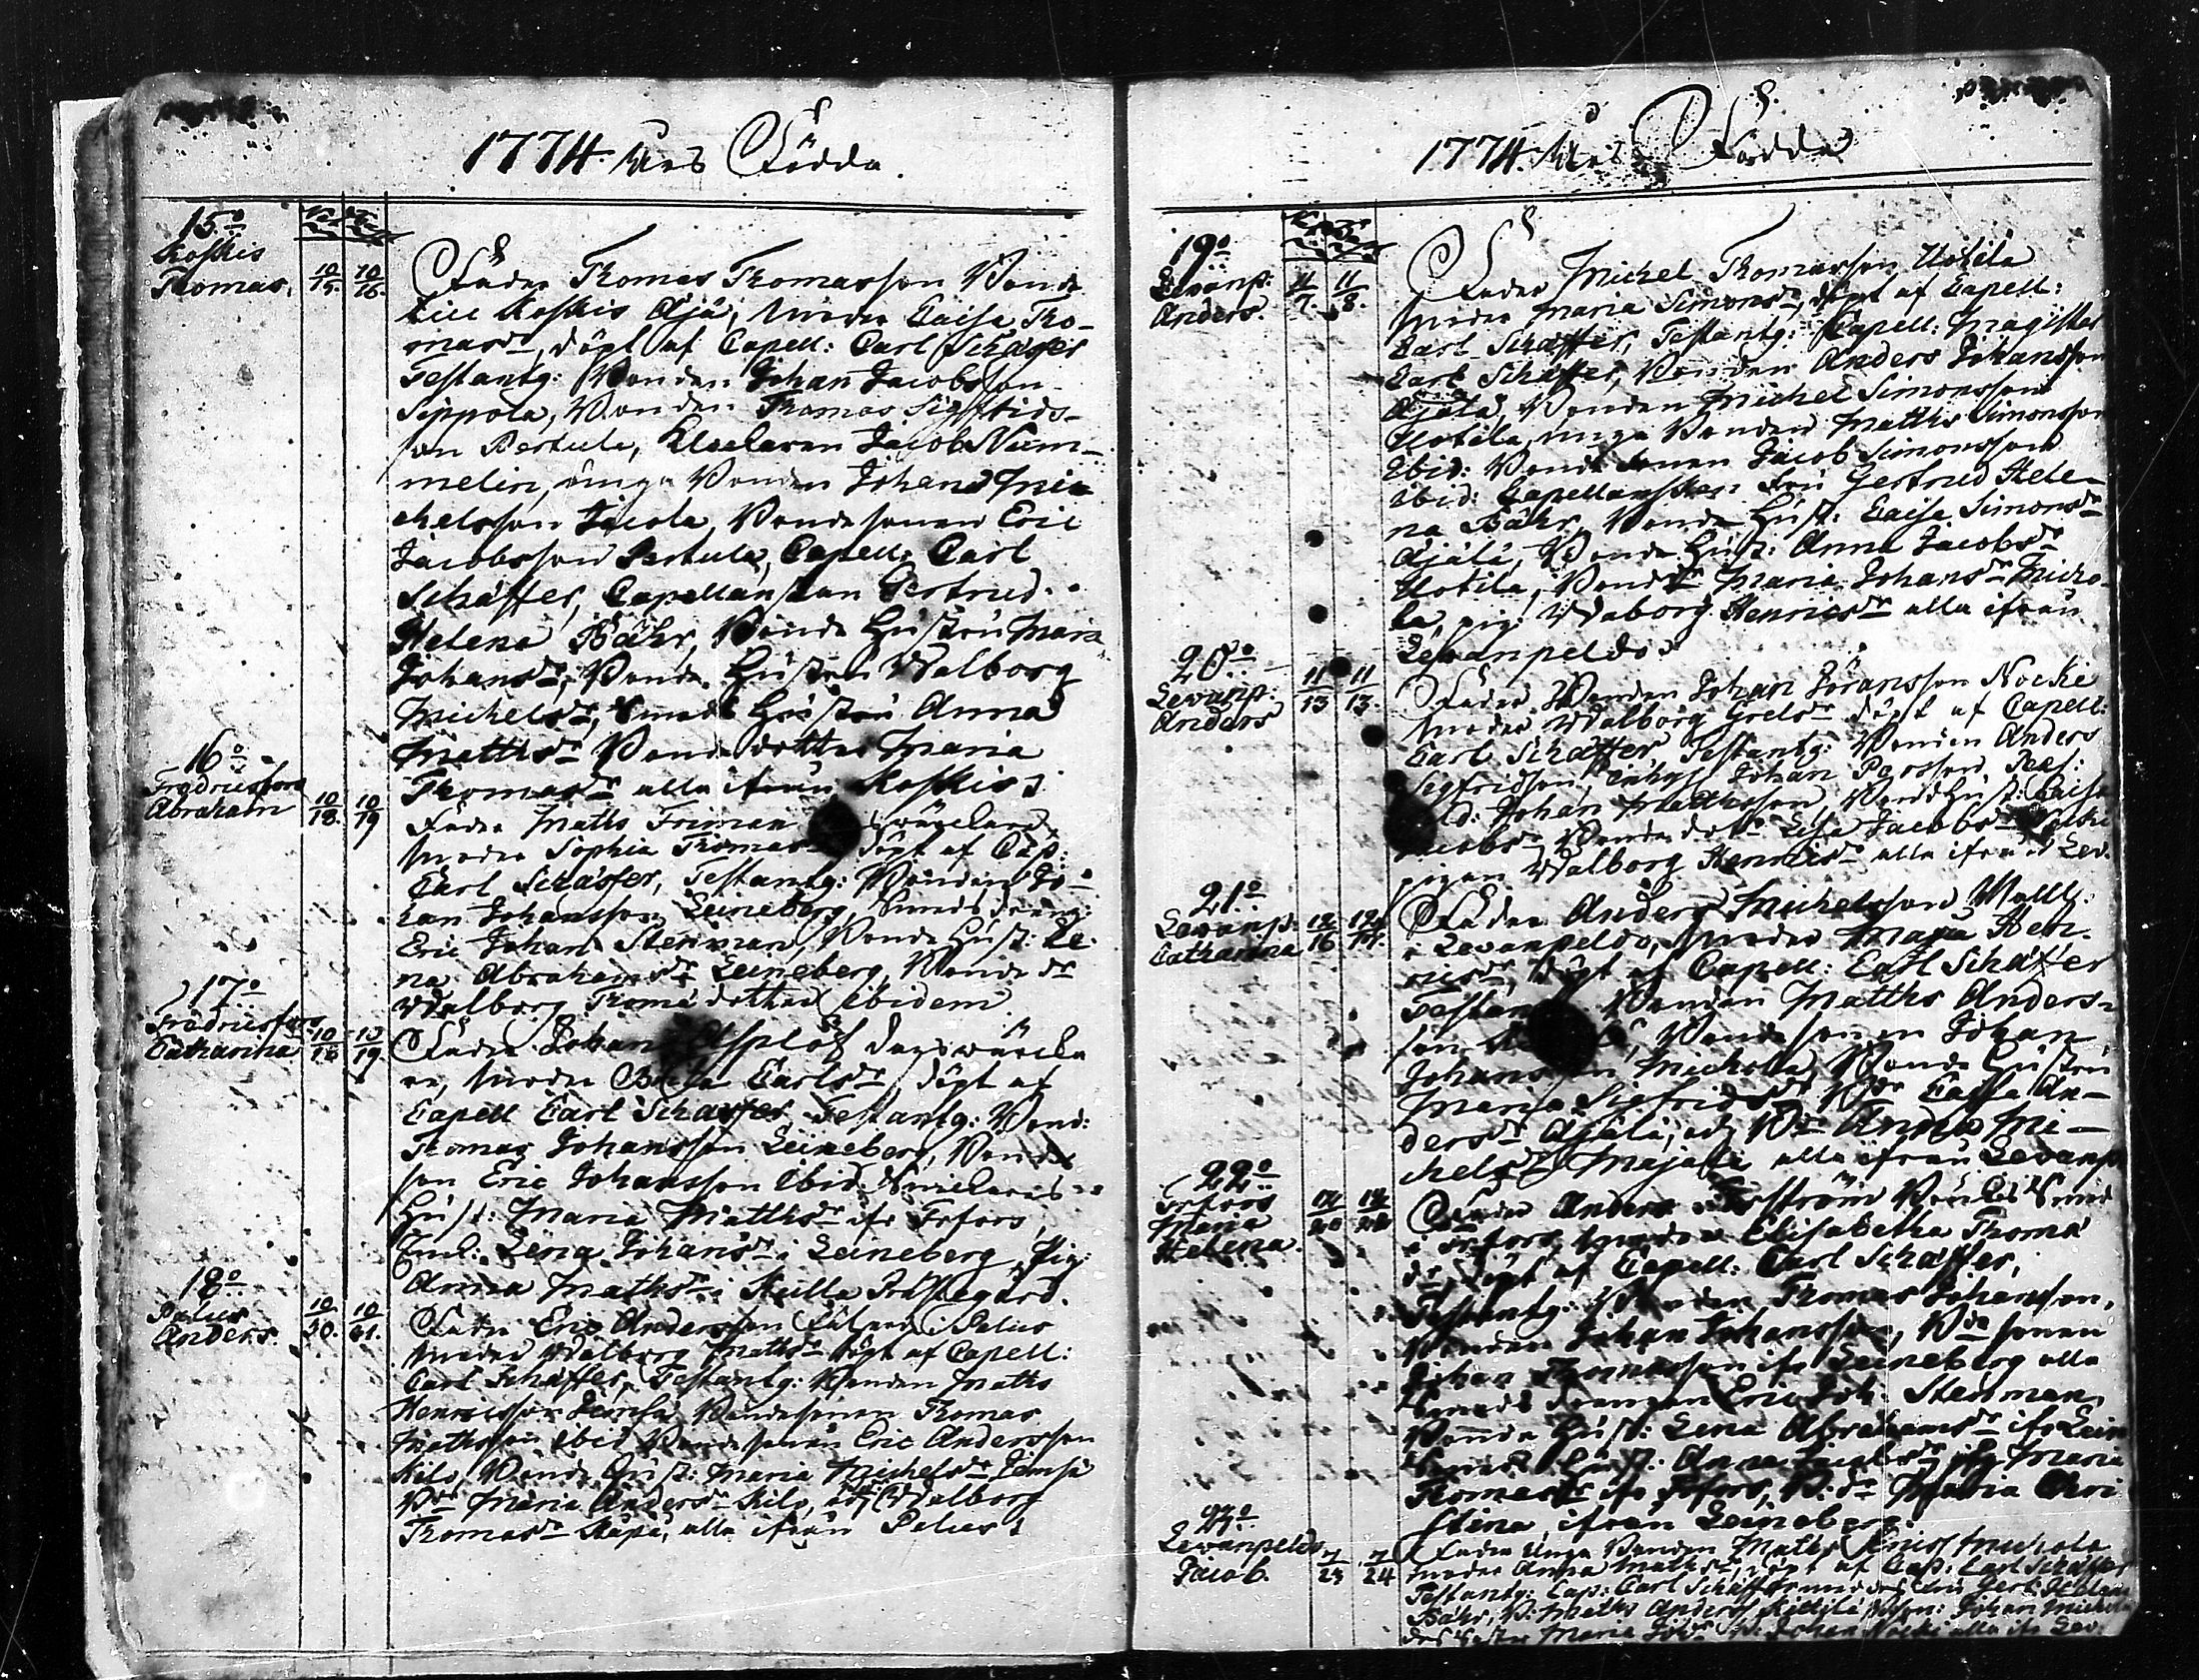 1774 Års Födde
15º
Koskis
Thomas. 10/15. 10/16.
Fader Thomas Thomasson Bonde
till Koskis Äijä, Moder Caisa Tho-
masdr, döpt af Capell: Carl Schäffer
Testantg: Bonden Johan Jacobsson
Seppola, Bonden Thomas Sigfrids-
son Pertula, Jacob Num-
melin, unga Bonden Johan Mi-
chelsson Jacola, Bondesonen Eric
Jacobsson Pertula, Capell: Carl
Schäffer, Capellanskan Gertrud
Helena Bähr, Bonde Hustrun Maria
Johansdr, Bonde Hustrun Walborg
Michelsdr, Smeds Hustrun Anna
Matthsdr Bonde dotter Maria
Thomasdr alla ifrån Koskis
16º
Fredricsfors
Abraham 10/18. 10/19
Fader Matts Friman
Moder Sophia Thomasdr döpt af Cap:
Carl Schäffer, Testantg: Bonden Jo-
han Johansson Leineberg, Smedsdräng:
Eric Johan Stenman, Bonde Hust: Le-
na Abrahamsdr Leineberg, Bonde dr
Walborg Thomæ dotter ibidem
17º
Fredricsfors
Catharina 10/18 10/19
Fader Johan Asplöf dagswärcka-
re, Moder Carlsdr, döpt af
Capell Carl Schæffer Testantg: Bond:
Thomas Johansson Leineberg, Bonde
son Eric Johansson ibid:
Hust: Maria Matthsdr ifr Trfors
Enk: Lena Johansdr i Leineberg, Pig:
Anna Mathsdr i Skulla Prästegård.
18º
Palus
Anders. 10/30. 10/31.
Fader Eric Andersson i Palus
Moder Walborg Mathsdr döpt af Capell:
Carl Schæffer, Testantg: Bonden Maths
Henricsson Jemsä Bondesonen Thomas
Mathsson ibid Bondesonen Eric Andersson
Kilo, Bonde Hust: Maria Michelsdr Jemsä
Bdr Maria Andersdr Kilo, och Walborg
Thomasdr alla ifrån Palus
1774. Års Födde
19º
Levanp:
Anders. 11/7. 11/8.
Fader Michel Thomasson Uotila
Moder Maria Simonsdr, döpt af Capell:
Carl Schæffer, Testantg: Capell: Magister
Carl Schæffer, Bonden Anders Johansson
Äjälä, Bonden Michel Simonsson
Uotila, unga Bonden Matths Simonsson
Ibid: Bonde Sonen Jacob Simonsson
ibid: Capellanskan Fru Gertrud Hele-
na Bähr, Bonde Hust: Caisa Simonsdr
Äjälä, Bonde Hust: Anna Jacobsdr
Uotila, Bondr Maria Johansdr Micho-
la, pig: Waborg Henricsdr alla ifrån
Levanpeldo
20º
Levanp:
Anders 11/13 11/13.
Fader Bonden Johan Jöransson Nocke
Moder Walborg Grelsdr döpt af Capell:
Carl Schæffer, Testantg: Bonden Anders
Sigfridson, Johan Persson,
Johan Mathsson, Bonde Hust: Caisa
Jacobsdr Bonde dotr Lisa Jacobsdr
pigan Walborg Henricsdr alla ifrån Lev.
21º
Levanp:
Catharina 12/16 12/17.
Fader Anders Michelsson
i Levanpeldo, Moder Maja Hen-
ricsdr, döpt af Capell: Carl Schäffer
Testan Bonden Matths Anders-
son Bondesonen Johan
Johansson Michola Bonde Hustrun
Maria Sigfridsdr Bdr Caisa An-
dersdr Äjälä, och Bdr Anna Mi-
chelsdr alla ifrån Levanp
22º
Trfors
Maria
Helena. 12/20 12/22
Fader Anders
i Trfors, Moder Elisabetha Thomæ
dr, döpt af Capell: Carl Schäffer,
Testantg: Bonden Thomas Johanson,
Bonden Johan Johansson, Bde sonen
Johan Thomasson ifr Leineberg alla
Smeds drengen Eric Joh. Stenman,
Bonde Hust: Lena Abrahamsdr ifr Lein
Smeds Hust: Anna Jacobsdr Maria
Thomasdr ifr Trfors, B:dr Maria Chri
stina, ifrån Leineberg.
23º
Levanpeldo
Jacob. 7/23 7/24
Fader Unga Bonden Maths Michola
Moder Anna Mathsdr, döpt af Cap: Carl Schäffer
Testantg: Cap: Carl Schæffer Fru Gert: Helena
Bähr, B: Maths Anderss Johan Michels
Maria Johsdr B: Johan Nocke alla ifr Lev.